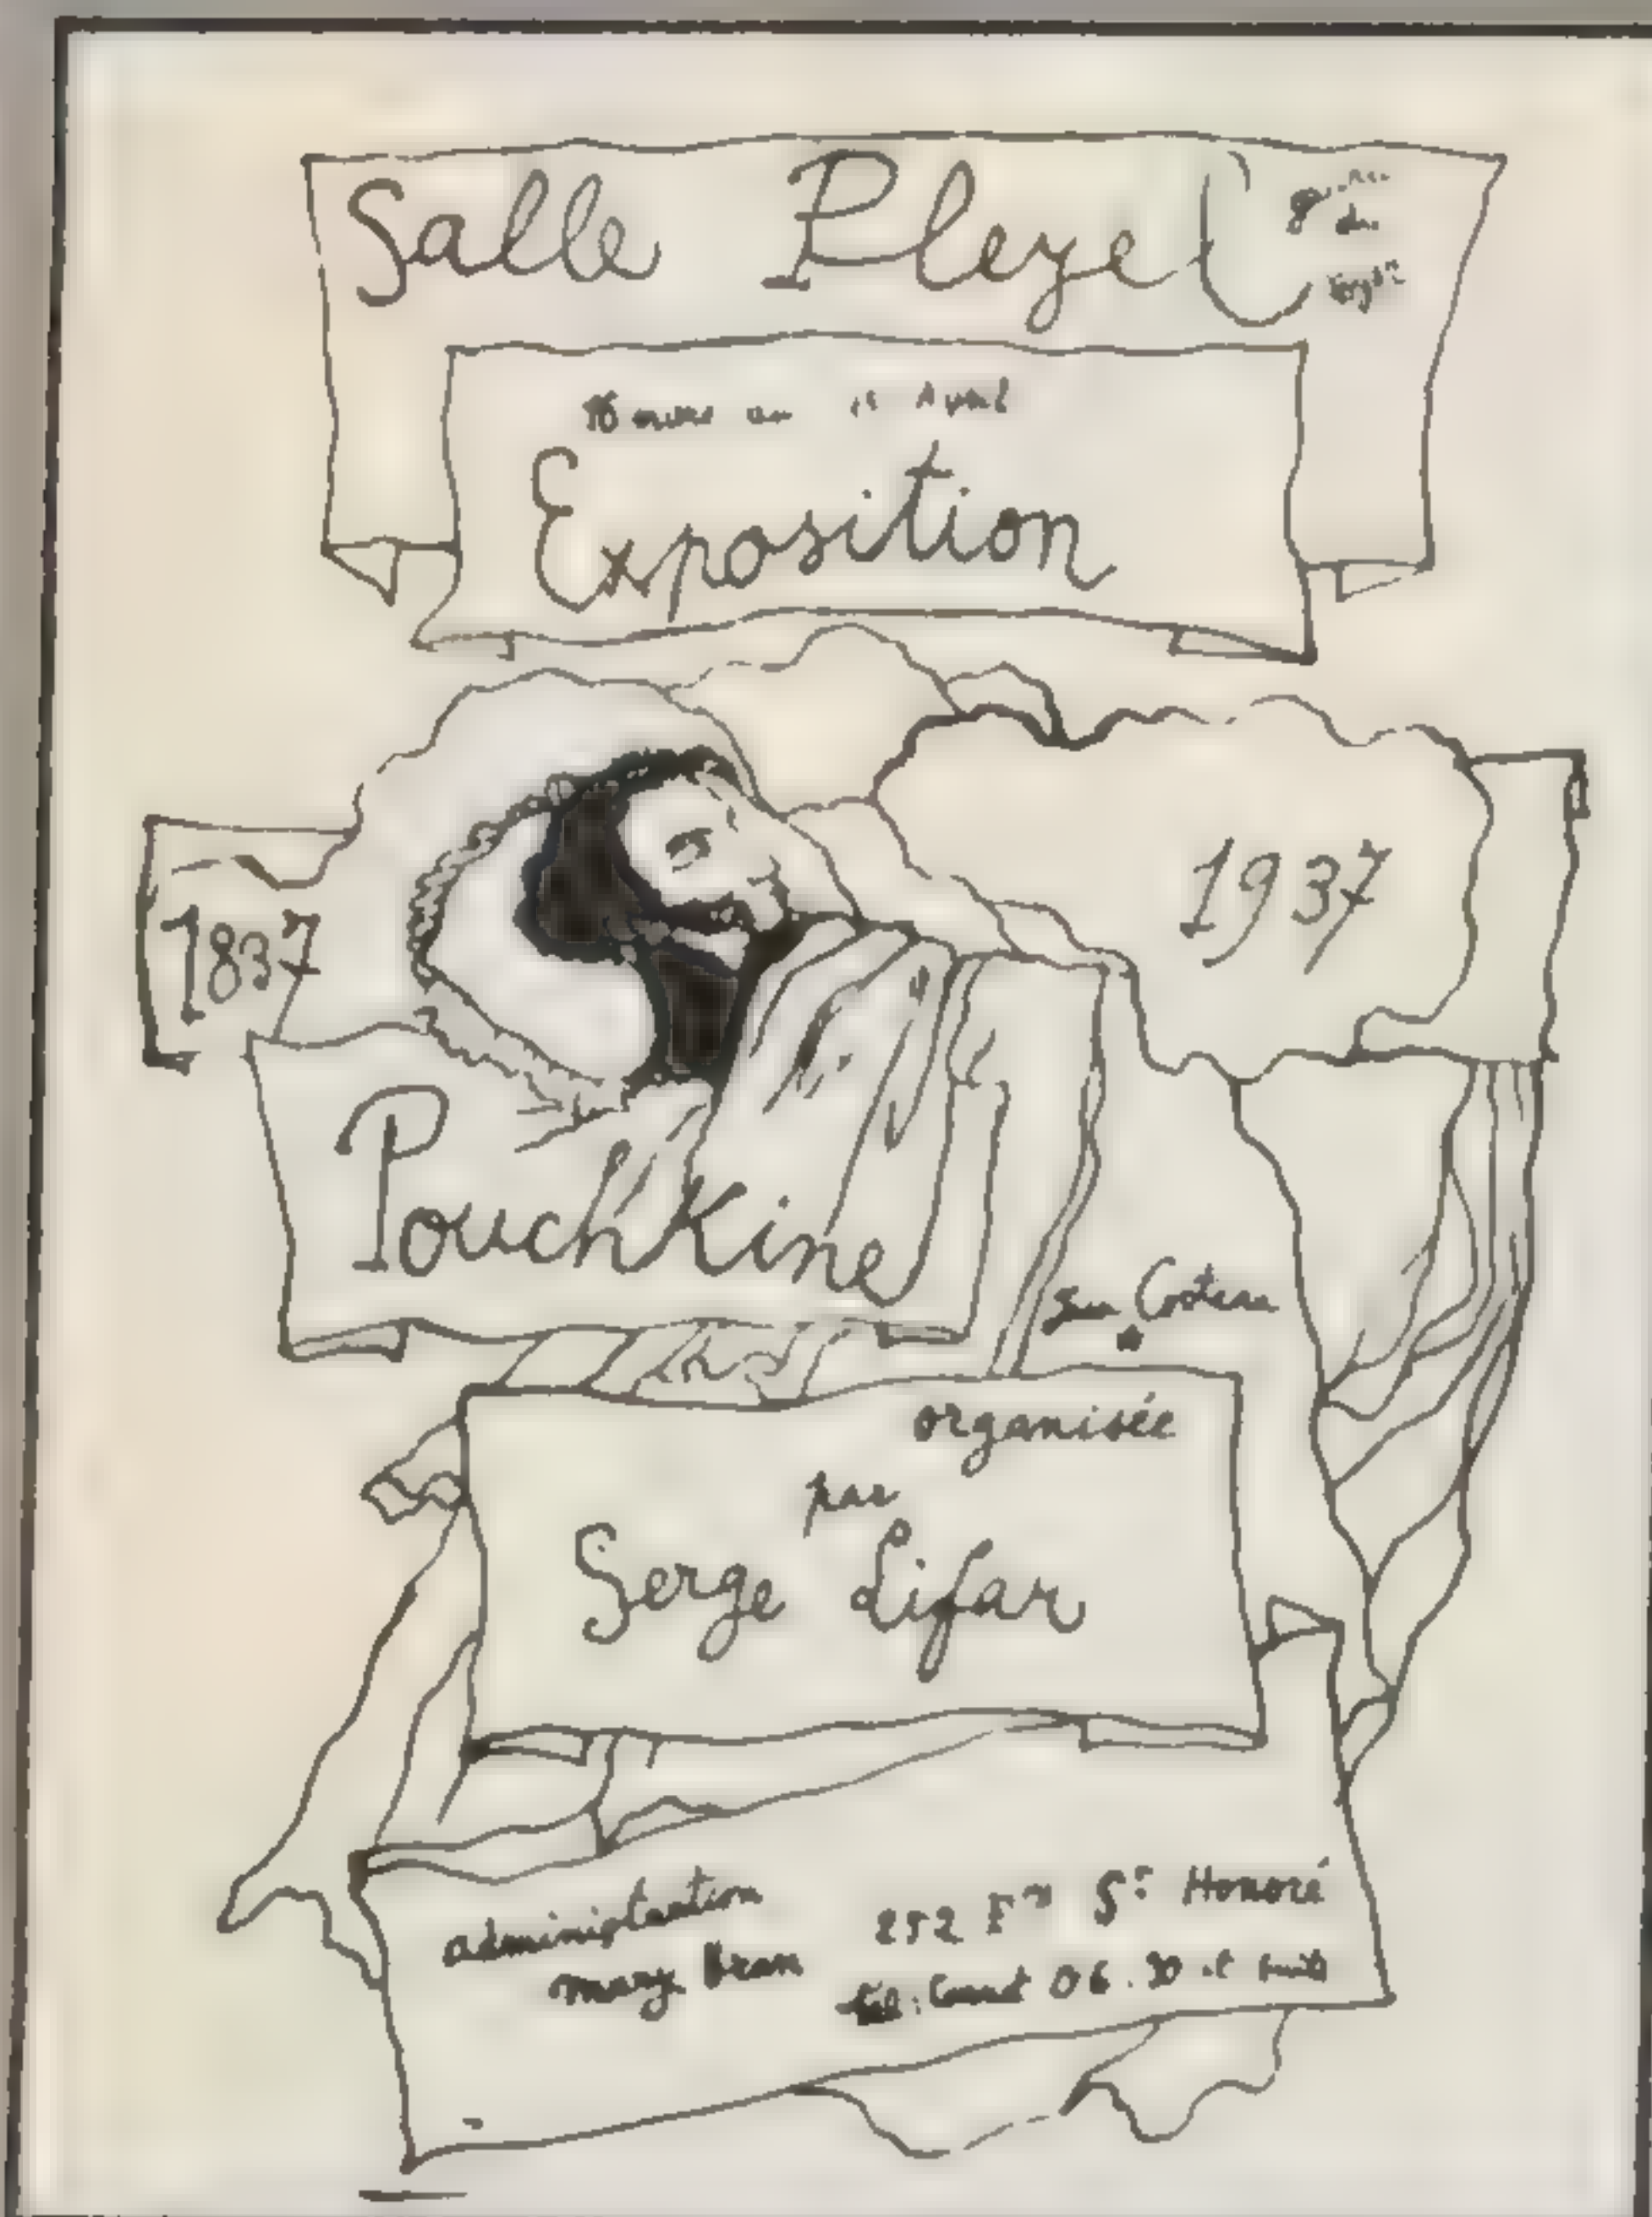 Salle Pleyel
16 mars au 15 Avril
Exposition
1837
1937
Pouchkine
Jean Cocteau
organisée
par
Serge Lifar
administration
mary Bran
252 Fg St Honoré
tél: Carnot 06.30 et suite